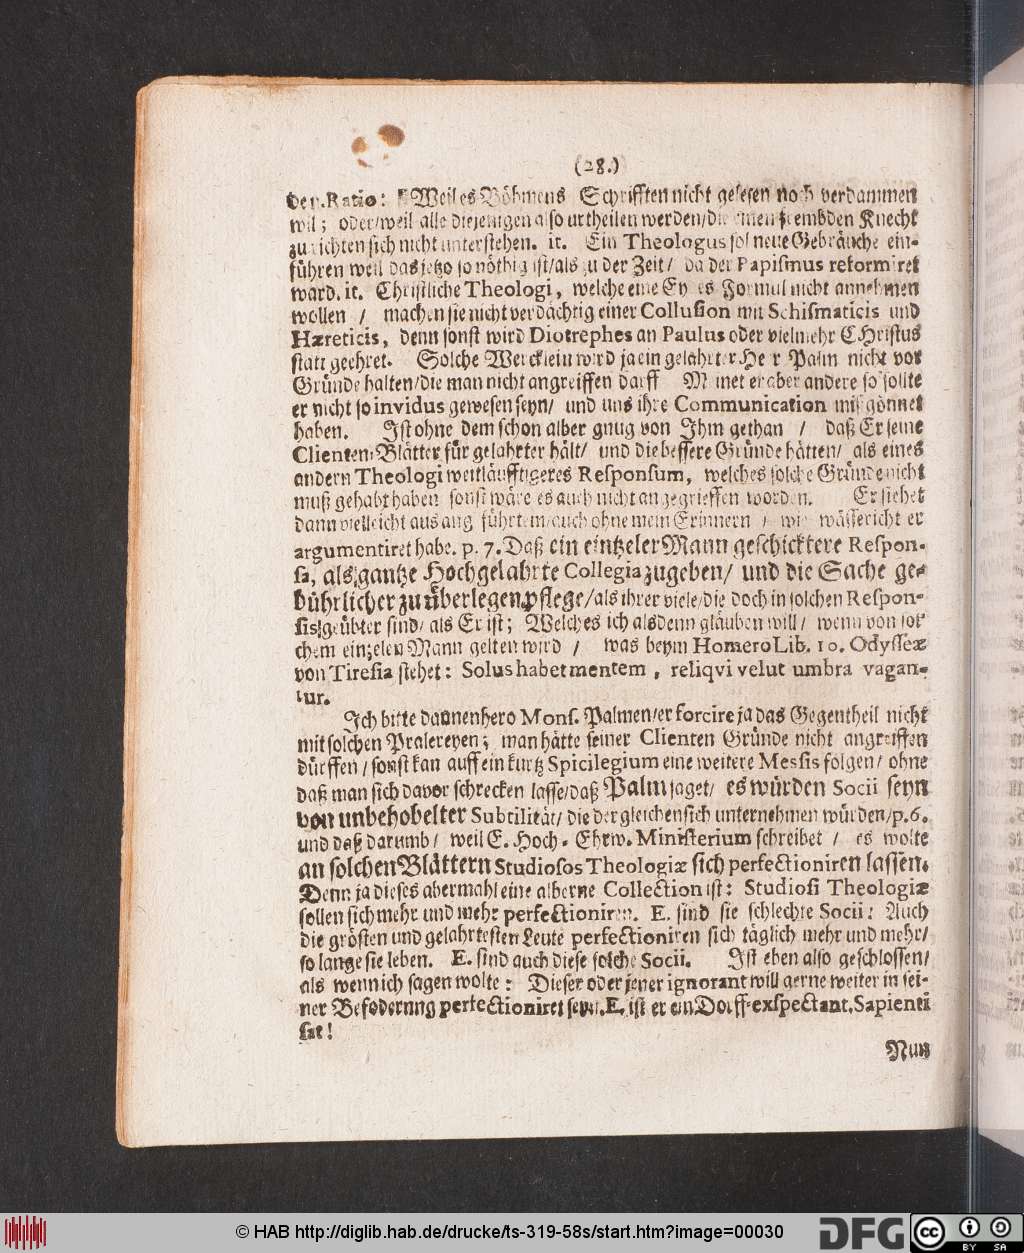 (28.)
der. Ratio: Weil es Böhmens Schrifften nicht gelesen noch verdammen
wil; oder/weil alle diejenigen also urtheilen werden/die einen frembden Knecht
zu richten sich nicht unterstehen. it. Ein Theologus sol neue Gebräuche ein-
führen weil das jetzo so nöthig ist/als zu der Zeit/ da der Papismus reformiret
ward. it. Christliche Theologi, welche eine Formul nicht annehmen
wollen / machen sie nicht verdächtig einer Collusion mit Schismaticis und
Hæreticis, denn sonst wird Diotrephes an Paulus oder vielmehr CHristus
statt geehret. Solche Wercklein wird ja ein gelahrter Herr Palm nicht vor
Gründe halten/die man nicht angreiffen darff Meinet er aber andere so sollte
er nicht so invidus gewesen seyn/ und uns ihre Communication mißgönnet
haben. Ist ohne dem schon alber gnug von Ihm gethan / daß Er seine
Clienten-Blätter für gelahrter hält/ und die bessere Gründe hätten/ als eines
andern Theologi weitläufftigeres Responsum, welches solche Gründe nicht
muß gehabt haben sonst wäre es auch nicht angegrieffen worden. Er siehet
dann vielleicht aus angeführtem/auch ohne mein Erinnern / wie er
argumentiret habe. p. 7. Daß ein eintzeler Mann geschicktere Respon-
sa, als gantze Hochgelahrte Collegia zugeben/ und die Sache ge-
bührlicher zu überlegen pflege/als ihrer viele/die doch in solchen Respon-
sis geübter sind/ als Er ist; Welches ich alsdenn gläuben will/ wenn von sol-
chem einzelen Mann gelten wird / was beym Homero Lib. 10. Odysseæ
von Tiresia stehet: Solus habet mentem, reliqvi velut umbra vagan-
tur.
Ich bitte dannenhero Mons. Palmen/er forcire ja das Gegentheil nicht
mit solchen Pralereyen; man hätte seiner Clienten Gründe nicht angreiffen
dürffen/ sonst kan auff ein kurtz Spicilegium eine weitere Messis folgen/ ohne
daß man sich davor schrecken lasse/daß Palm saget/ es würden Socii seyn
von unbehobelter Subtilität/ die dergleichen sich unternehmen würden/p.6.
und daß darumb/ weil E. Hoch-Ehrw. Ministerium schreibet / es wolte
an solchen Blättern Studiosos Theologiæ sich perfectioniren lassen.
Denn ja dieses abermahl eine alberne Collection ist: Studiosi Theologiæ
sollen sich mehr und mehr perfectioniren. E. sind sie schlechte Socii: Auch
die grösten und gelahrtesten Leute perfectioniren sich täglich mehr und mehr/
so lange sie leben. E. sind auch diese solche Socii. Ist eben also geschlossen/
als wenn ich sagen wolte: Dieser oder jener ignorant will gerne weiter in sei-
ner Befoderung perfectioniret seyn. E. ist er ein Dorff-exspectant. Sapienti
sat!
Nun
© HAB http://diglib.hab.de/drucke/ts-319-58s/start.htm?image=00030
DFG
cc BY SA